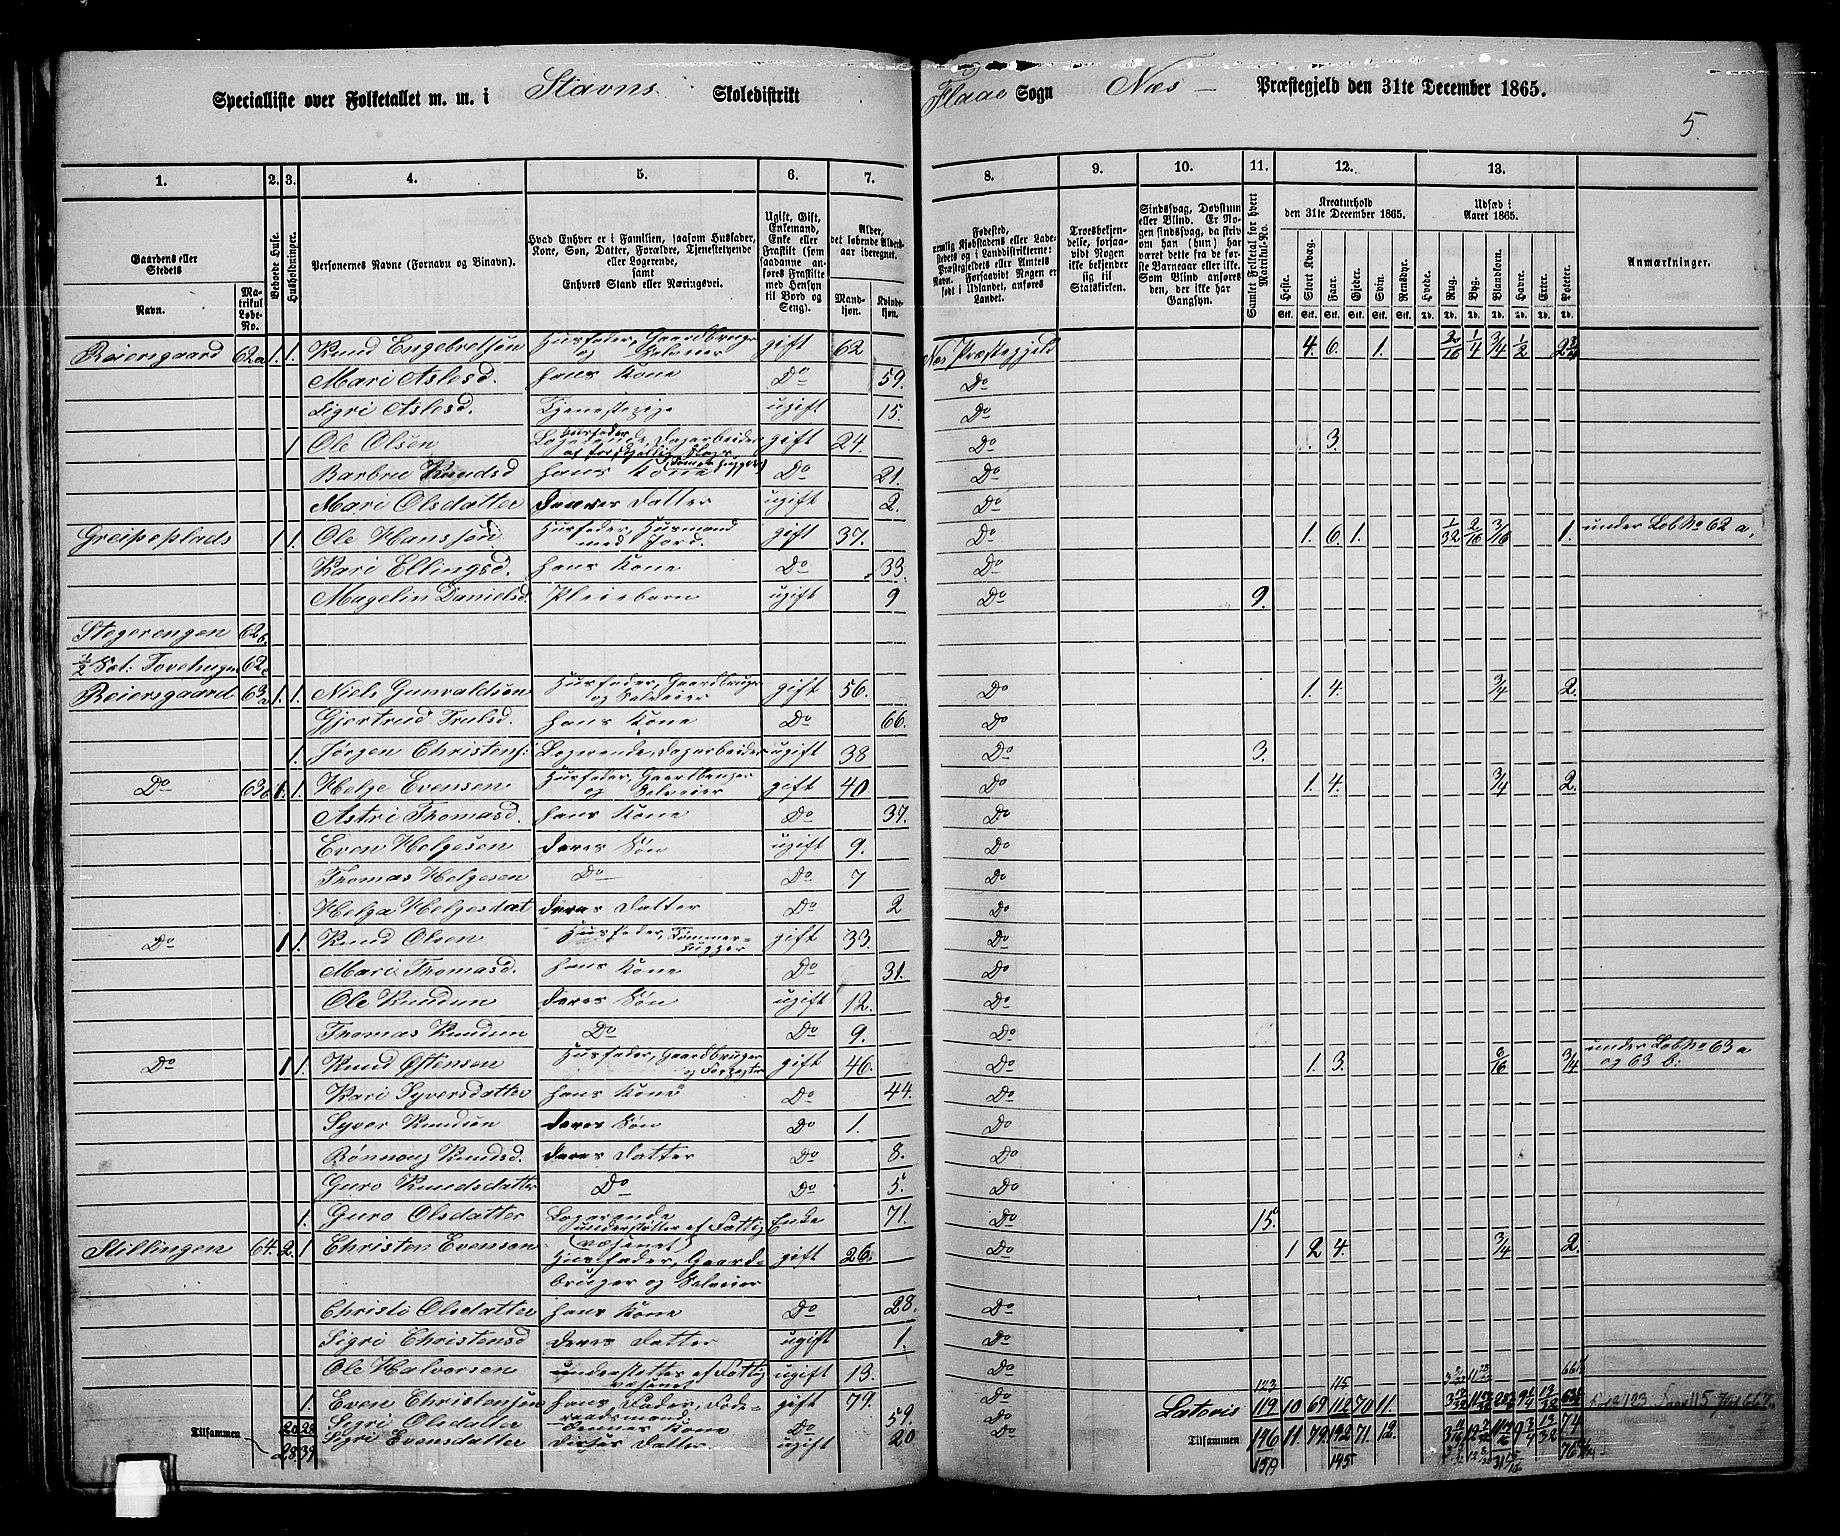 Specialliste over Folketallet m. m. i Stavns Skoledistrikt Flaae Sogn Næs Præstegjeld den 31te December 1865.
5.
1. 2. 3. 4. 5. 6. 7. 8. 9. 10. 11. 12. 13.
Gaardens eller Stedets
Navn.
Matrikul Løbe-No.
Beboede Huse.
Husholdninger.
Personernes Navne (Fornavn og Binavn).
Hvad Enhver er i Familien, saasom Husfader, Kone, Søn, Datter, Forældre, Tjenestetyende eller Logerende, samt Enhvers Stand eller Næringsvei.
Ugift, Gift, Enkemand, Enke eller Fraskilt (som saadanne anføres Fraskilte med Hensyn til Bord og Seng).
Alder, det løbende Aldersaar iberegnet.
Mandkjøn. Kvindekjøn.
Troesbekjendelse, forsaavidt Nogen ikke bekjender sig til Statskirken.
Sindssvag, Døvstum eller Blind.
Samlet Folketal for hvert Matrikul-No.
Kreaturhold den 31te December 1865.
Heste. Stort Kvæg. Faar. Gjeder. Svin. Rensdyr.
Udsæd i Aaret 1865.
Hvede. Rug. Byg. Blandkorn. Havre. Erter. Poteter.
Anmærkninger.
Reiersgaard 62a 1. 1. Knud Engebretsøn Husfader, Gaardbruger og Selveier gift 62 Nes Præstegjeld 4. 6. 1. 3/16 1/4 3/4 1/2 2 3/4
Mari Aslesd. hans Kone Do 59. Do
Sigri Aslesd. Tjenestepige ugift 15. Do
1 Ole Olsen Logerende, Dagarbeider gift 24. Do 3.
Barbru Knudsd hans Kone Do 21. Do
Mari Olsdatter deres Datter ugift 2. Do
Greipeplads 1 1. Ole Hanssøn Husfader, Husmand med Jord. gift 37. Do 1. 6. 1. 1/32 2/16 3/16 1. under Løb No 62 a,
Kari Ellingsd. hans Kone Do 33. Do
Magelin Danielsd. Pleiebarn ugift 9 Do 9.
Stegerengen 62b
1/2 Sæl: Tovehugen 62c
Reiersgaard 63a 1. 1. Niels Gunvaldsøn Husfader, Gaardbruger og Selveier gift 56. Do 1. 4. 3/4 2.
Gjertrud Trulsd. hans Kone Do 66. Do
1. Jørgen Christens: Logerende, Dagarbeider ugift 38 Do 3.
Do 63b 1. 1. Helge Evensen Husfader, Gaardbruger og Selveier gift 40 Do 1. 4. 3/4 2.
Astri Thomasd. hans Kone Do 37. Do
Even Helgesen deres Søn ugift 9. Do
Thomas Helgesen Do Do 7 Do
Helga Helgesdat deres Datter Do 2 Do
Do 1 1. Knud Olsen Husfader, Tømmerhugger gift 33. Do
Mari Thomasd. hans Kone Do 31. Do
Ole Knudsen deres Søn ugift 12. Do
Thomas Knudsen Do Do 9. Do
Do 1 1. Knud Østensen Husfader, Gaardbruger og Forpagter gift 46. Do 1. 3. 6/16 3/4 under Løb No 63 a og 63 b.
Kari Syversdatter hans Kone Do 44. Do
Syver Knudsøn deres Søn Do 1. Do
Rønnoug Knudsd. deres Datter Do 8. Do
Guro Knudsdatter Do Do 5. Do
1. Guro Olsdatter Logerende understøttes af Fattigvæsenet Enke 71. Do 15.
Stillingen 64. 2. 1 Christen Evensen Husfader, Gaardbruger og Selveier gift 26. Do 1 2 4. 3/4 2.
Christi Olsdatter hans Kone Do 28. Do
Sigri Christensd deres Datter ugift 1. Do
Ole Halvorsen understøttes af Fattigvæsenet ugift 13. Do
1. Even Christensøn hans Fader, Føderaadsmand gift 79. Do
Sigri Olsdatter dennes Kone Do 59. Do
Sigri Evensdatter deres Datter ugift 20 Do
Latoris 119 10 69 112 70 11.
Tilsammen 28 39 Tilsammen 146 11. 79. 142 71. 12.
145